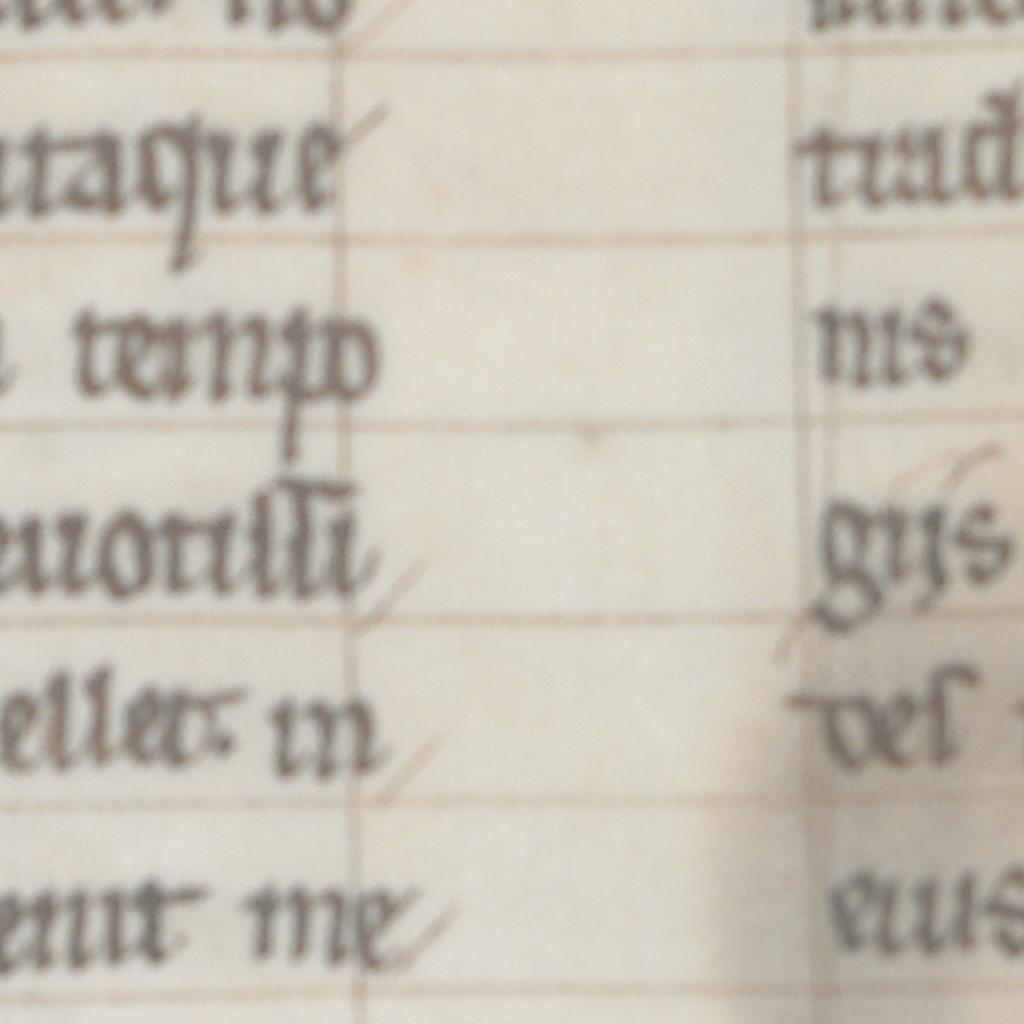 utaque
tempo
uotisti
ellet. in
erut me
trad
nis
gijs
vel
eius